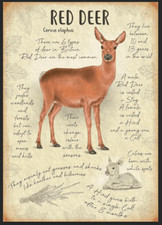 RED DEER
Cervus elaphus
There are 6 types
of deer in Britain.
Red Deer are the most common.
They live
between
10 and
18 years
in the wild
A male
Red Deer
is a Stag.
A female
is called
a Hind
They prefer
woodlands
and
forests
but can
adapt to
open
moors
and hills
Their
coats
change
colour
with the
seasons
Calves are
born with
white
spots
They mainly eat grasses and shrubs
like heather and bilberries
A Hind gives birth
to a single Calf
after 8 months